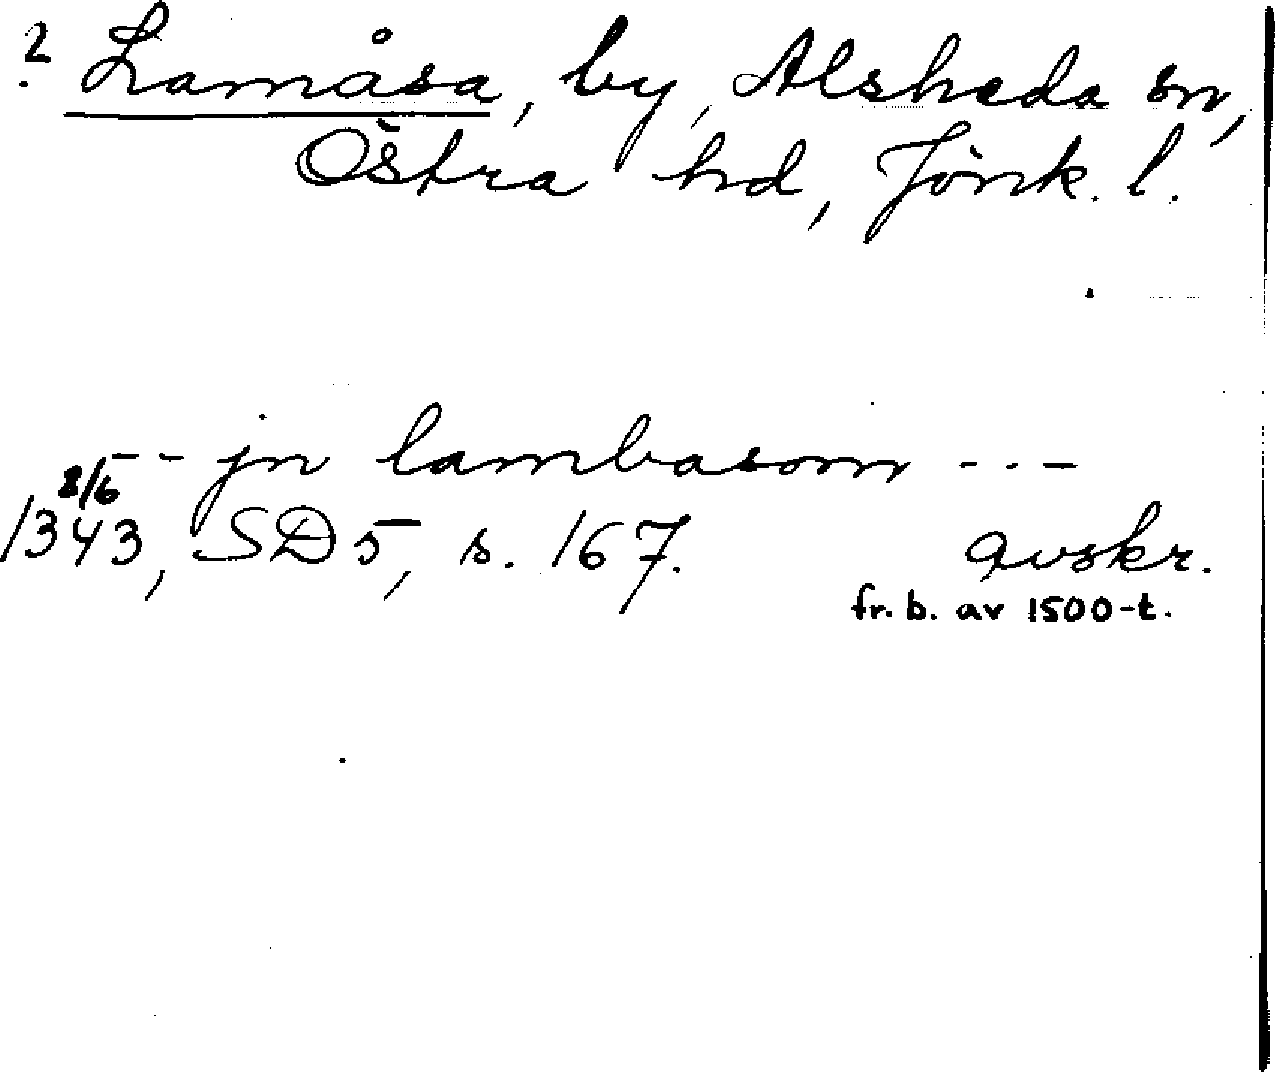 ? Lamåsa, by, Alsheda sn,
Östra hd, Jönk. l.
- - jn lambasom - - -
8/6
1343, SD 5, s. 167. avskr.
fr. b. av 1500-t.